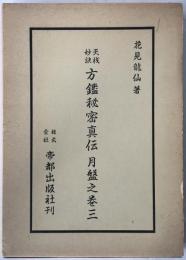 花見龍仙著
天機
妙訣
方鑑秘密真伝 月盤之巻三
株式
会社
帝都出版社刊